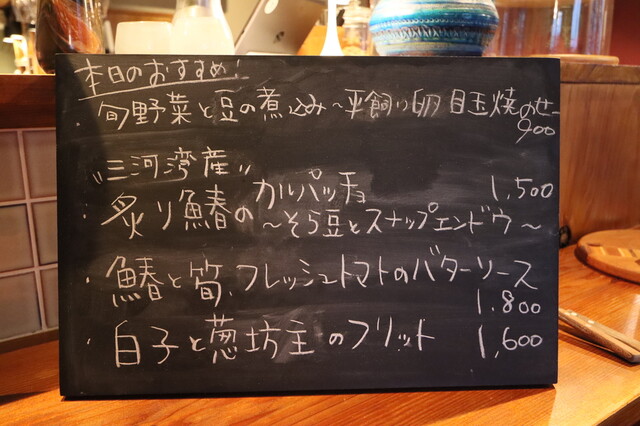 本日のおすすめ!
・旬野菜と豆の煮込み〜平飼い卵目玉焼のせ〜
900
"三河湾産"
・炙り鰆のカルパッチョ 1,500
〜そら豆とスナップエンドウ〜
・鰆と筍、フレッシュトマトのバターソース
1,800
・白子と葱坊主のフリット 1,600